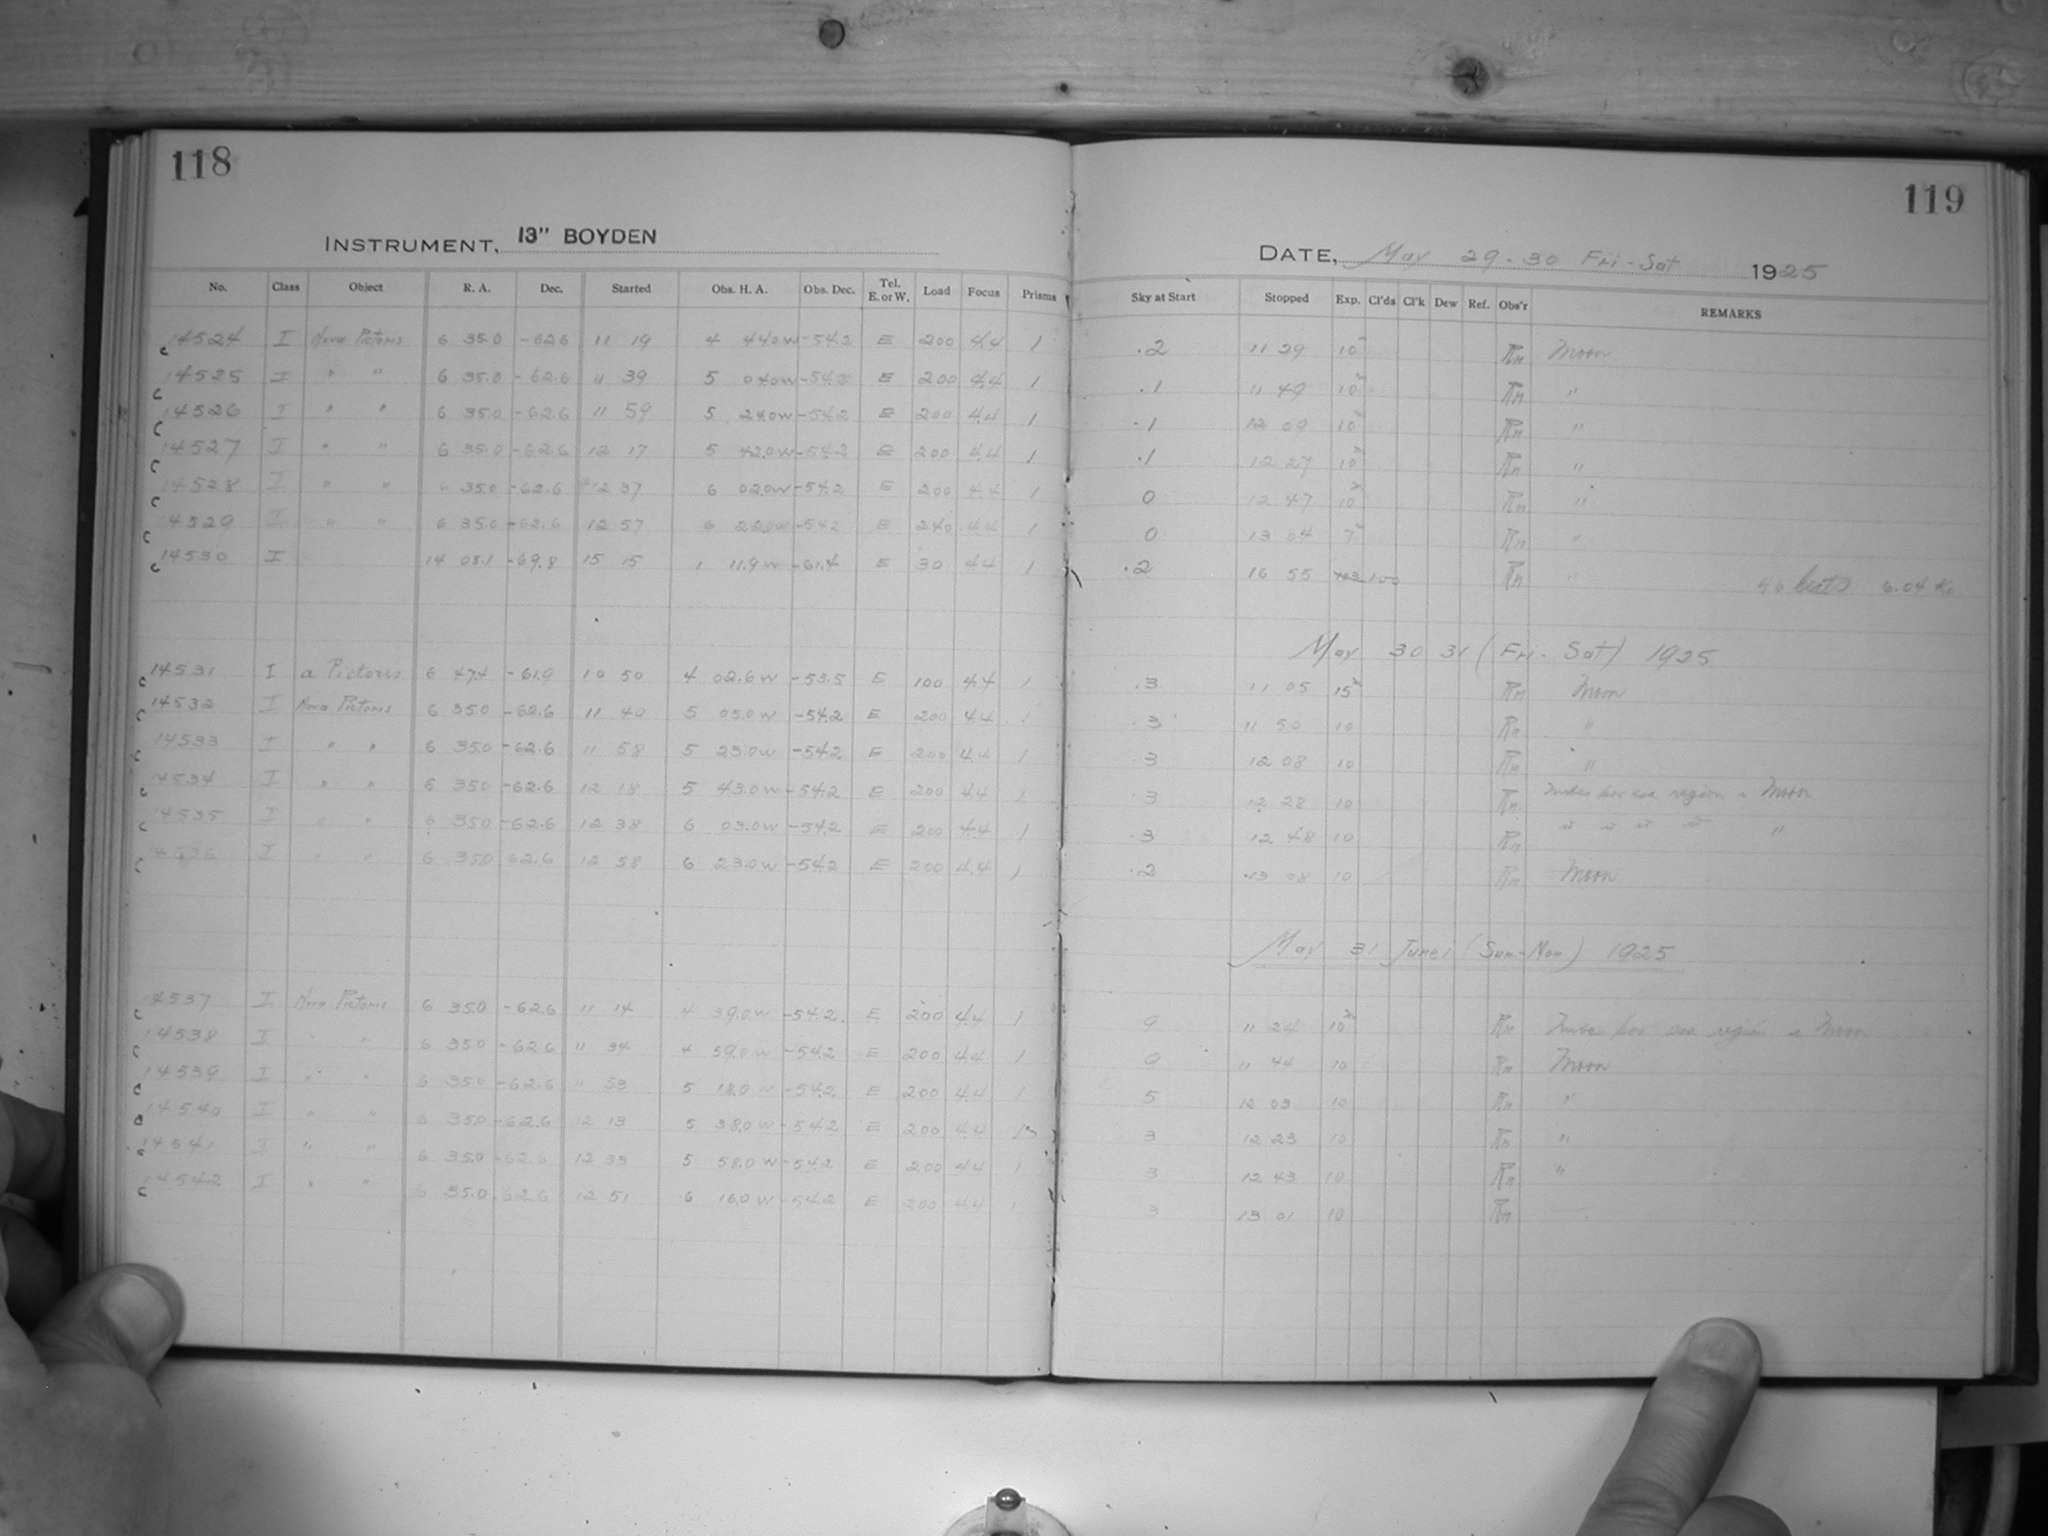 118
INSTRUMENT, 13" BOYDEN
No. Class Object R. A. Dec. Started Obs. H. A. Obs. Dec. Tel. E. or W. Load Focus Prisms
14524 I Nova Pictoris 6 35.0 -62.6 11 19 4 44.0 W -54.2 E 200 4.4 1
14525 I " " 6 35.0 -62.6 11 39 5 04.0 W -54.2 E 200 4.4 1
14526 I " " 6 35.0 -62.6 11 59 5 24.0 W -54.2 E 200 4.4 1
14527 I " " 6 35.0 -62.6 12 17 5 42.0 W -54.2 E 200 4.4 1
14528 I " " 6 35.0 -62.6 12 37 6 02.0 W -54.2 E 200 4.4 1
14529 I " " 6 35.0 -62.6 12 57 6 22.0 W -54.2 E 240 4.4 1
14530 I 14 03.1 -69.8 15 15 1 11.9 W -61.4 E 30 4.4 1
14531 I a Pictoris 6 47.4 -61.9 10 50 4 02.6 W -53.5 E 100 4.4 1
14532 I Nova Pictoris 6 35.0 -62.6 11 40 5 05.0 W -54.2 E 200 4.4 1
14533 I " " 6 35.0 -62.6 11 58 5 23.0 W -54.2 E 200 4.4 1
14534 I " " 6 35.0 -62.6 12 18 5 43.0 W -54.2 E 200 4.4 1
14535 I " " 6 35.0 -62.6 12 38 6 03.0 W -54.2 E 200 4.4 1
14536 I " " 6 35.0 62.6 12 58 6 23.0 W -54.2 E 200 4.4 1
14537 I Nova Pictoris 6 35.0 -62.6 11 14 4 39.0 W -54.2 E 200 4.4 1
14538 I " " 6 35.0 -62.6 11 34 4 59.0 W -54.2 E 200 4.4 1
14539 I " " 6 35.0 -62.6 11 53 5 18.0 W -54.2 E 200 4.4 1
14540 I " " 6 35.0 -62.6 12 13 5 38.0 W -54.2 E 200 4.4
14541 I " " 6 35.0 -62.6 12 33 5 58.0 W -54.2 E 200 4.4 1
14542 I " " 6 35.0 -62.6 12 51 6 16.0 W -54.2 E 200 4.4 1
119
DATE, May 29-30 Fri-Sat 1925
Sky at Start Stopped Exp. Cl'ds Cl'k Dew Ref. Obs'r REMARKS
.2 11 29 10m Rn Moon
.1 11 49 10m Rn "
.1 12 09 10m Rn "
.1 12 27 10m Rn "
0 12 47 10m Rn "
0 13 04 7m Rn "
.2 16 55 100 Rn " 46 beats 6.04
May 30 31 (Fri-Sat) 1925
.3 11 05 15m Rn Moon
.3 11 50 10 Rn "
.3 12 08 10 Rn "
.3 12 28 10 Rn region Moon
.3 12 48 10 Rn " " " " "
.2 13 08 10 Rn Moon
May 31 June 1 (Sun-Mon) 1925
11 24 10m Rn region Moon
11 44 10 Rn Moon
5 12 03 10 Rn "
3 12 23 10 Rn "
3 12 43 10 Rn "
3 13 01 10 Rn